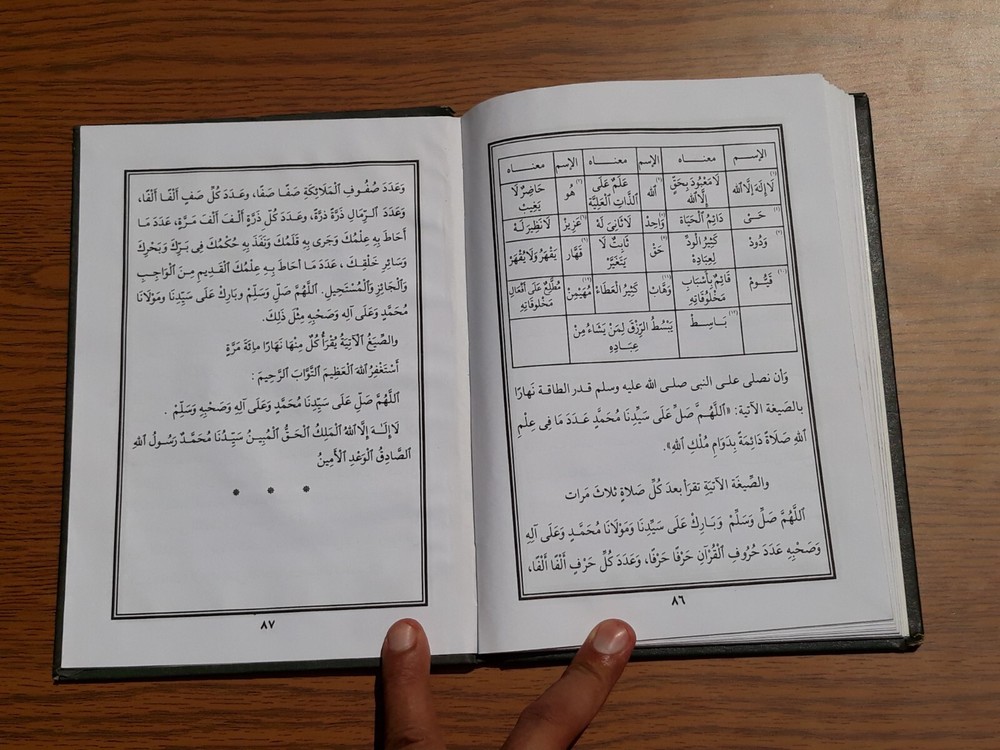 الإسم معناه الإسم معناه الإسم معناه
لَا إِلَهَ إِلَّا ٱلله(١) لَا مَعْبُودَ بِحَقٍّ إِلَّا ٱلله ٱلله(٢) عَلَمٌ عَلَى ٱلذَّاتِ ٱلْعَلِيَّة هُو(٣) حَاضِرٌ لَا يَغِيبُ
حَىّ(٤) دَائِمُ ٱلْحَيَاة وَاحِدٌ(٥) لَا ثَانِىَ لَهُ عَزِيزٌ(٦) لَا نَظِيرَ لَهُ
وَدُودٌ(٧) كَثِيرُ ٱلْودِّ لِعِبَادِهِ حَقٌ(٨) ثَابِتٌ لَا يَتَغَيَّرُ قَهَّار(٩) يَقْهَرُ وَلَا يُقْهَرُ
قَيُّومٌ(١٠) قَائِمٌ بِأَسْبَابِ مَخْلُوقَاتِهِ وَهَّابٌ(١١) كَثِيرُ ٱلْعَطَاءِ مُهَيْمِنٌ(١٢) مُطَّلِعٌ عَلَى أَفْعَالِ مَخْلُوقَاتِهِ
بَاسِطٌ(١٣) يَبْسُطُ ٱلرِّزْقَ لِمَنْ يَشَاءُ مِنْ عِبَادِهِ
وَأن نصلى على النبى صلى الله عليه وسلم قدر الطاقة نَهارًا
بالصيغة الآتية: «ٱللَّهُمَّ صَلِّ عَلَى سَيِّدِنَا مُحَمَّدٍ عَدَدَ مَا فِى عِلْمِ
ٱللهِ صَلَاةً دَائِمَةً بِدَوَامِ مُلْكِ ٱللهِ».
والصِّيغَة الآتيَةِ تقرَأ بعدَ كُلِّ صَلاةٍ ثلاث مَرات
ٱللَّهُمَّ صَلِّ وَسَلِّمْ وَبَارِكْ عَلَى سَيِّدِنَا وَمَوْلَانَا مُحَمَّدٍ وَعَلَى آلِهِ
وَصَحْبِهِ عَدَدَ حُرُوفِ ٱلْقُرْآنِ حَرْفًا حَرْفًا، وَعَدَدَ كُلِّ حَرْفٍ أَلْفًا أَلْفًا،
٨٦
وَعَدَدَ صُفُوفِ ٱلْمَلَائِكَةِ صَفًّا صَفًّا، وَعَدَدَ كُلِّ صَفٍ أَلْفًا أَلْفًا،
وَعَدَدَ ٱلرِّمَالِ ذَرَّةً ذَرَّةً، وَعَدَدَ كُلِّ ذَرَّةٍ أَلْفَ أَلْفَ مَرَّةٍ، عَدَدَ مَا
أَحَاطَ بِهِ عِلْمُكَ وَجَرَى بِهِ قَلَمُكَ وَنَفَذَ بِهِ حُكْمُكَ فِى بَرِّكَ وَبَحْرِكَ
وَسَائِرِ خَلْقِكَ، عَدَدَ مَا أحَاطَ بِهِ عِلْمُكَ ٱلْقَدِيمِ مِنَ ٱلْوَاجِبِ
وَٱلْجَائِزِ وَٱلْمُسْتَحِيلِ. ٱللَّهُمَّ صَلِّ وَسَلِّمْ وبَارِكْ عَلَى سَيِّدِنَا وَمَوْلَانَا
مُحَمَّدٍ وَعَلَى آلِهِ وَصَحْبِهِ مِثْلَ ذَلِكَ.
والصِّيَغُ ٱلْآتِيَةُ يُقْرَأُ كُلٌّ مِنْهَا نَهَارًا مِائَةَ مَرَّةٍ
أَسْتَغْفِرُ ٱللهَ ٱلْعَظِيمَ ٱلتَّوَّابَ ٱلرَّحِيمَ :
ٱللَّهُمَّ صَلِّ عَلَى سَيِّدِنَا مُحَمَّدٍ وَعَلَى آلِهِ وَصَحْبِهِ وَسَلِّمْ .
لَا إِلَهَ إِلَّا ٱللهُ ٱلْمَلِكُ ٱلْحَقُّ ٱلْمُبِينُ سَيِّدُنَا مُحَمَّدٌ رَسُولُ ٱللهِ
ٱلصَّادِقُ ٱلْوَعْدِ ٱلْأَمِينُ
* * *
٨٧